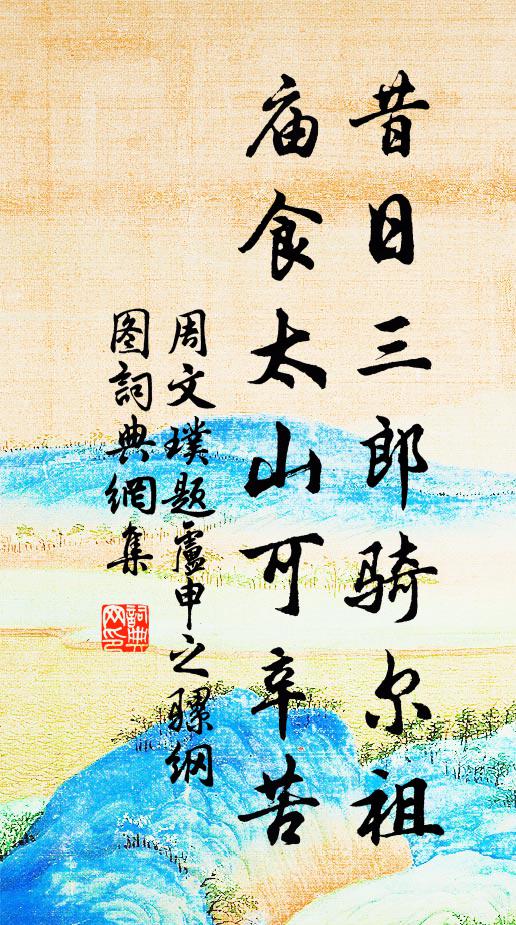 昔日三郎骑尔祖
庙食太山可辛苦
周文璞题卢申之骡纲
图词典網集
詞典网印